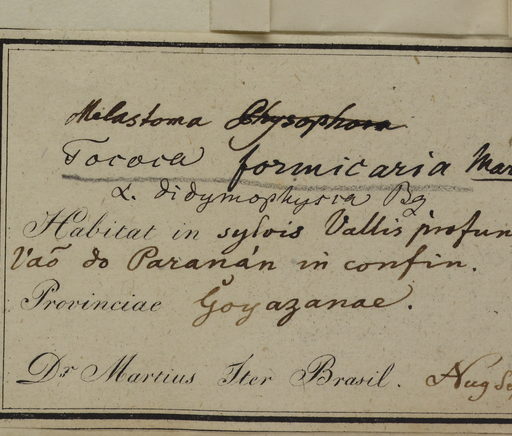 Melastoma Physophora
Tococa formicaria Mar
α. didymophysca Bg
Habitat in sylvis Vallis profun
Vaõ do Paranán in confin.
Provinciae Goyazanae.
Dr Martius Iter Brasil. Aug Sep